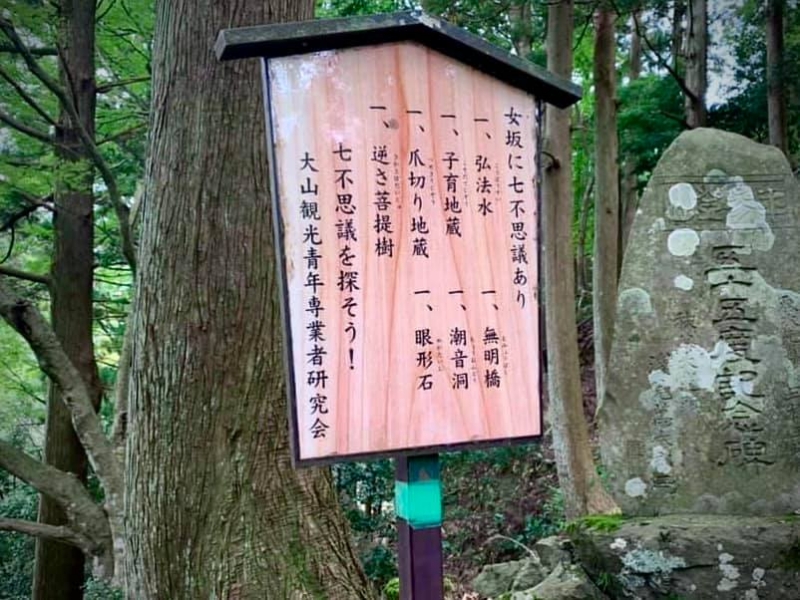 女坂に七不思議あり
一、弘法水
一、無明橋
一、子育地蔵
一、潮音洞
一、爪切り地蔵
一、眼形石
一、逆さ菩提樹
七不思議を探そう！
大山観光青年専業者研究会
五十五度記念碑